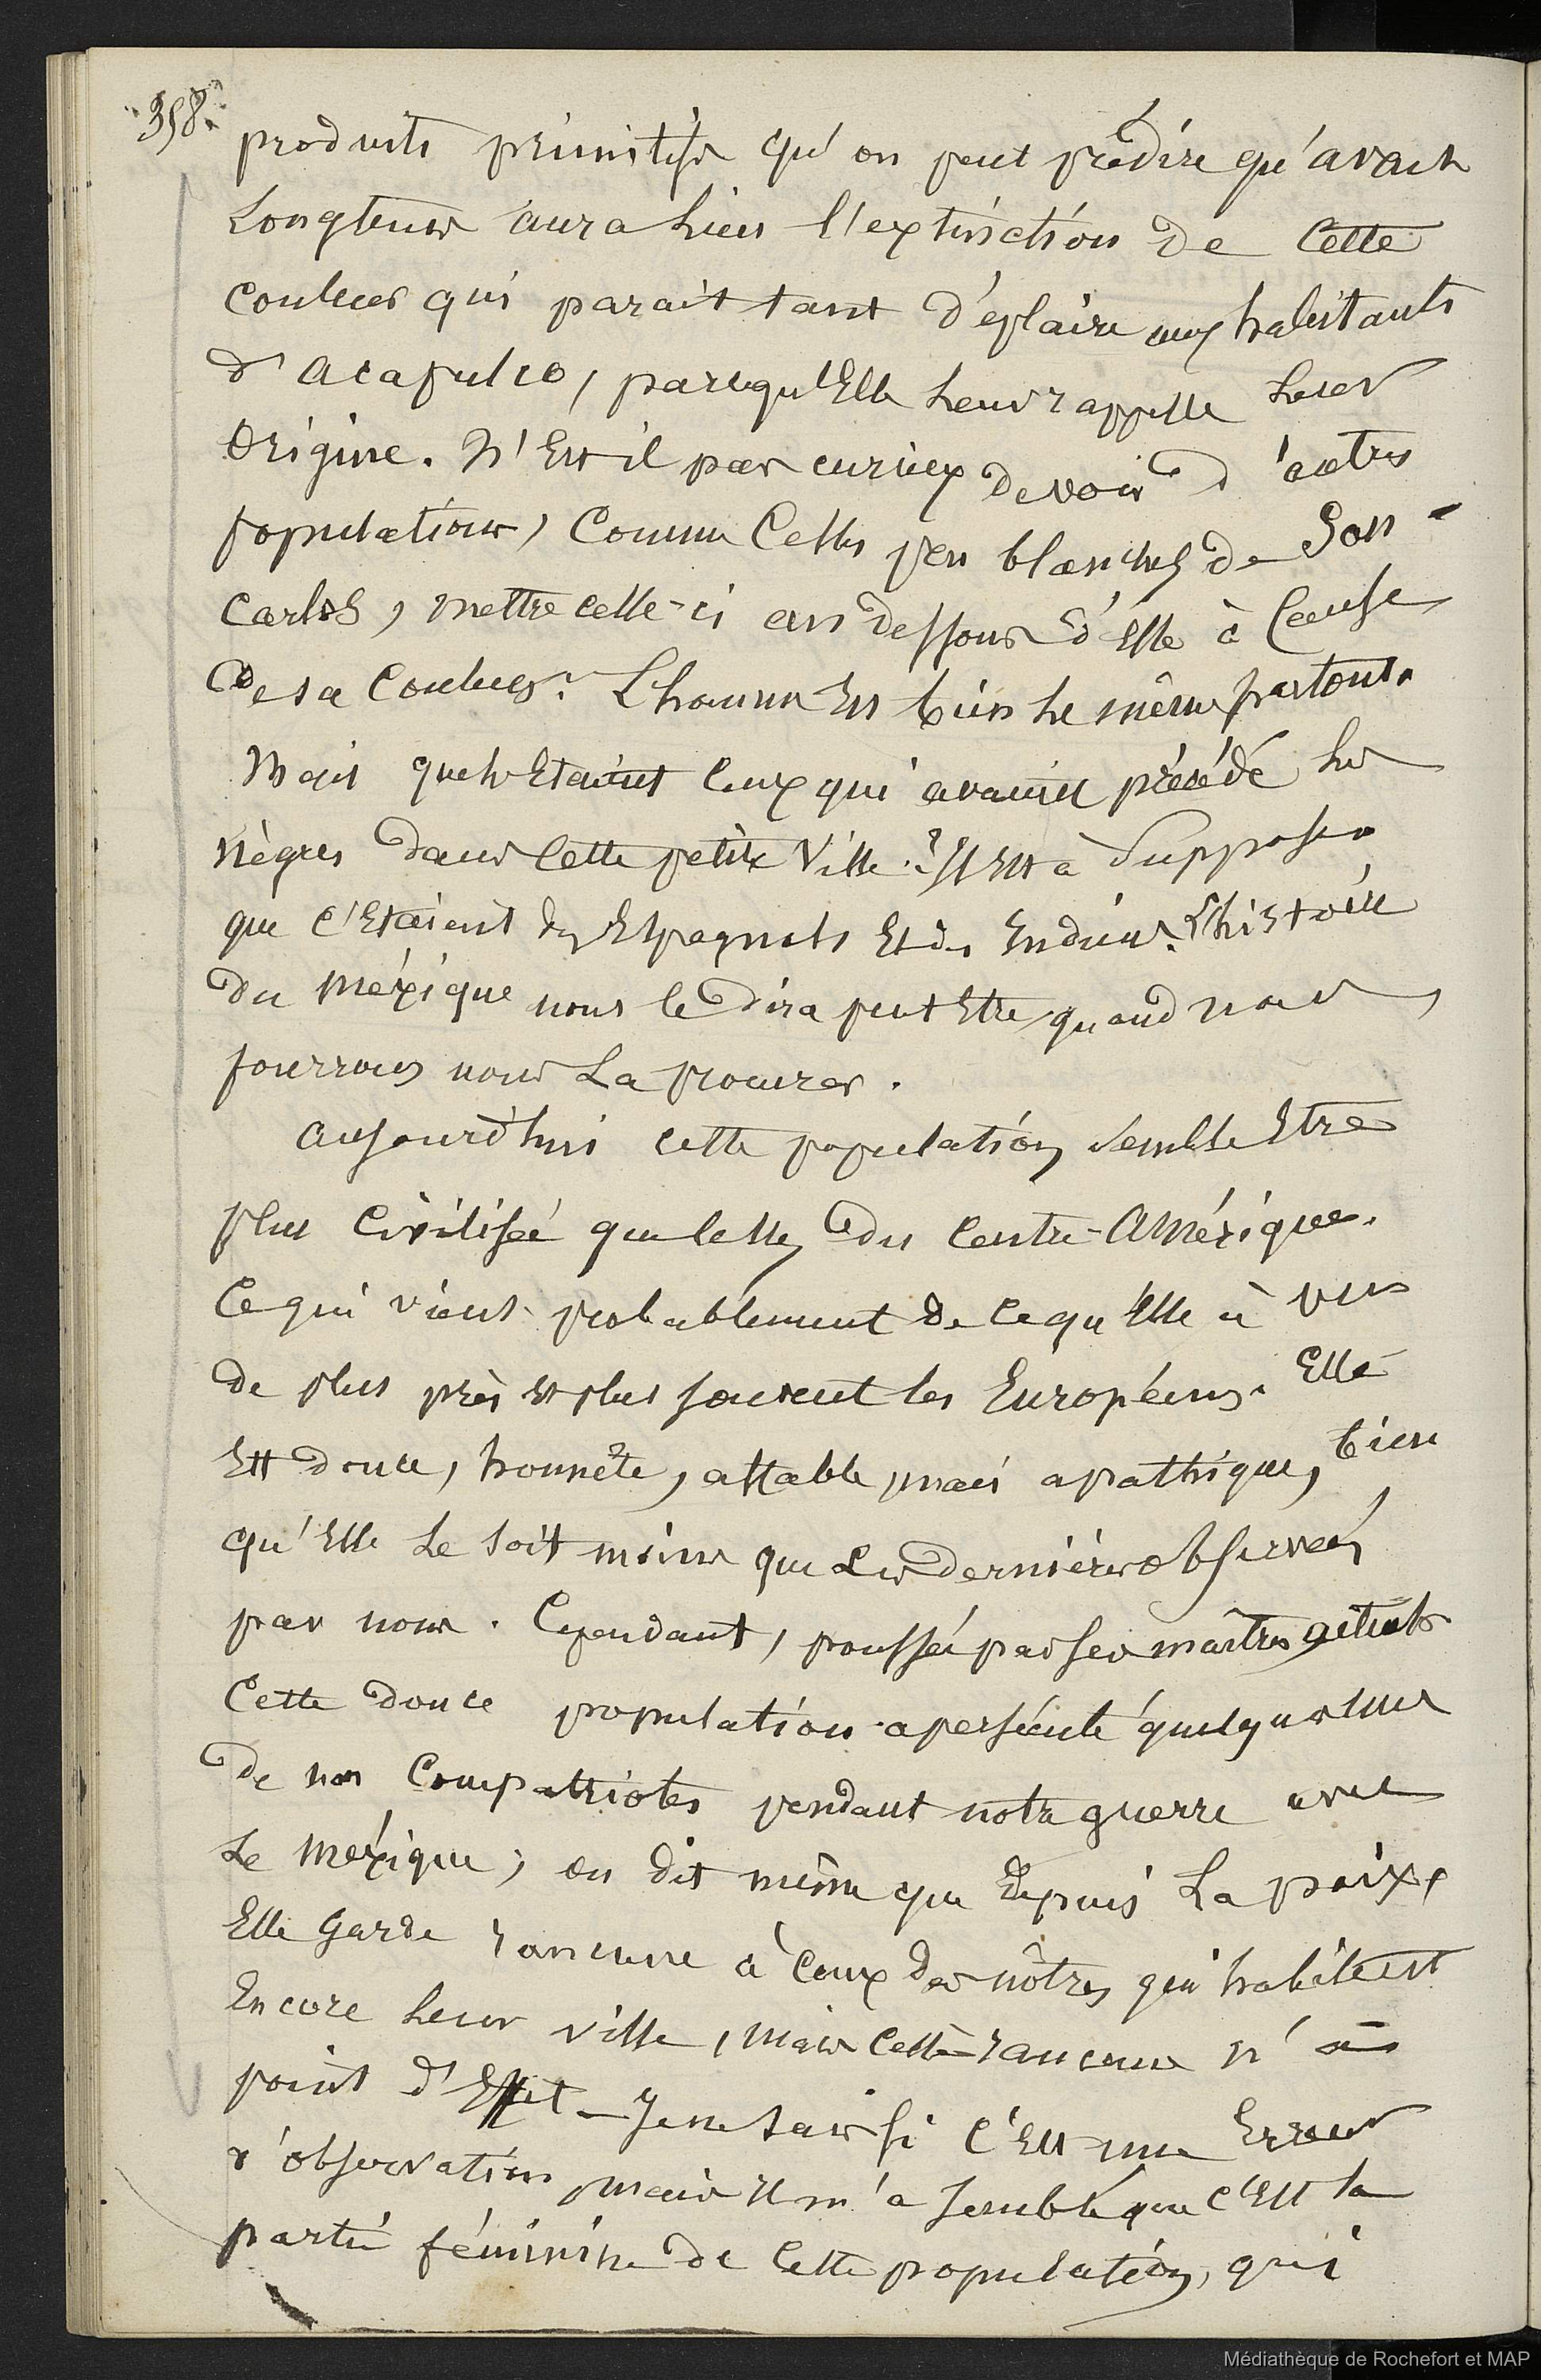 358.
produits primitifs qu'on peut prédire qu'avant
Longtems aura lieu l'extinction de Cette
couleur qui parait tant d'éplaire aux habitants
d'acapulco, parcequ'Elle Leur rappelle Leur
Origine. N'Est il pas curieux de voir d'autres
populations, Comme Celles peu blanches de San
Carlos, mettre celle-ci au dessous d'Elle à Cause
de sa Couleur. L'homme Est bien Le même partout.
Mais quels Etaient Ceux qui avaient précédé Les
nègres dans Cette petite Ville? Il Est à Supposer
que C'Etaient des Espagnols Et des Indiens. L'histoire
du Méxique nous le dira peut Etre quand nous
pourrons nous La procurer.
aujourd'hui cette population semble Etre
plus Civilisée que celles du Centre-Amérique.
Ce qui vient probablement de ce qu'Elle à vu
de plus près et plus souvent les Européens. Elle
Est douce, honnête, affable, mais apathique, bien
qu'Elle Le soit moins que Les dernières observées
par nous. Cependant, poussée par ses maîtres actuels
Cette douce population a persécuté quelques uns
de nos Compatriotes pendant notre guerre avec
Le Méxique; on dit même que depuis La paix,
Elle garde rancune à Ceux des nôtres qui habitent
Encore Leur ville, mais Cette rancune n'a
point d'Effet - Je ne sais si C'Est une Erreur
d'observation, mais Il m'a semblé que C'Est la
partie féminine de Cette population, qui
Médiathèque de Rochefort et MAP